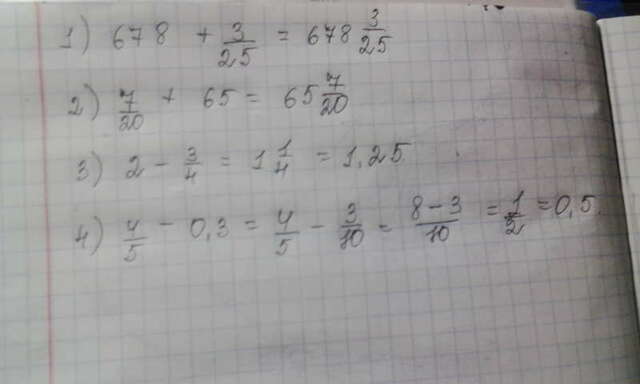 1) 678 + 3/25 = 678 3/25
2) 7/20 + 65 = 65 7/20
3) 2 - 3/4 = 1 1/4 = 1,25.
4) 4/5 - 0,3 = 4/5 - 3/10 = (8-3)/10 = 1/2 = 0,5.